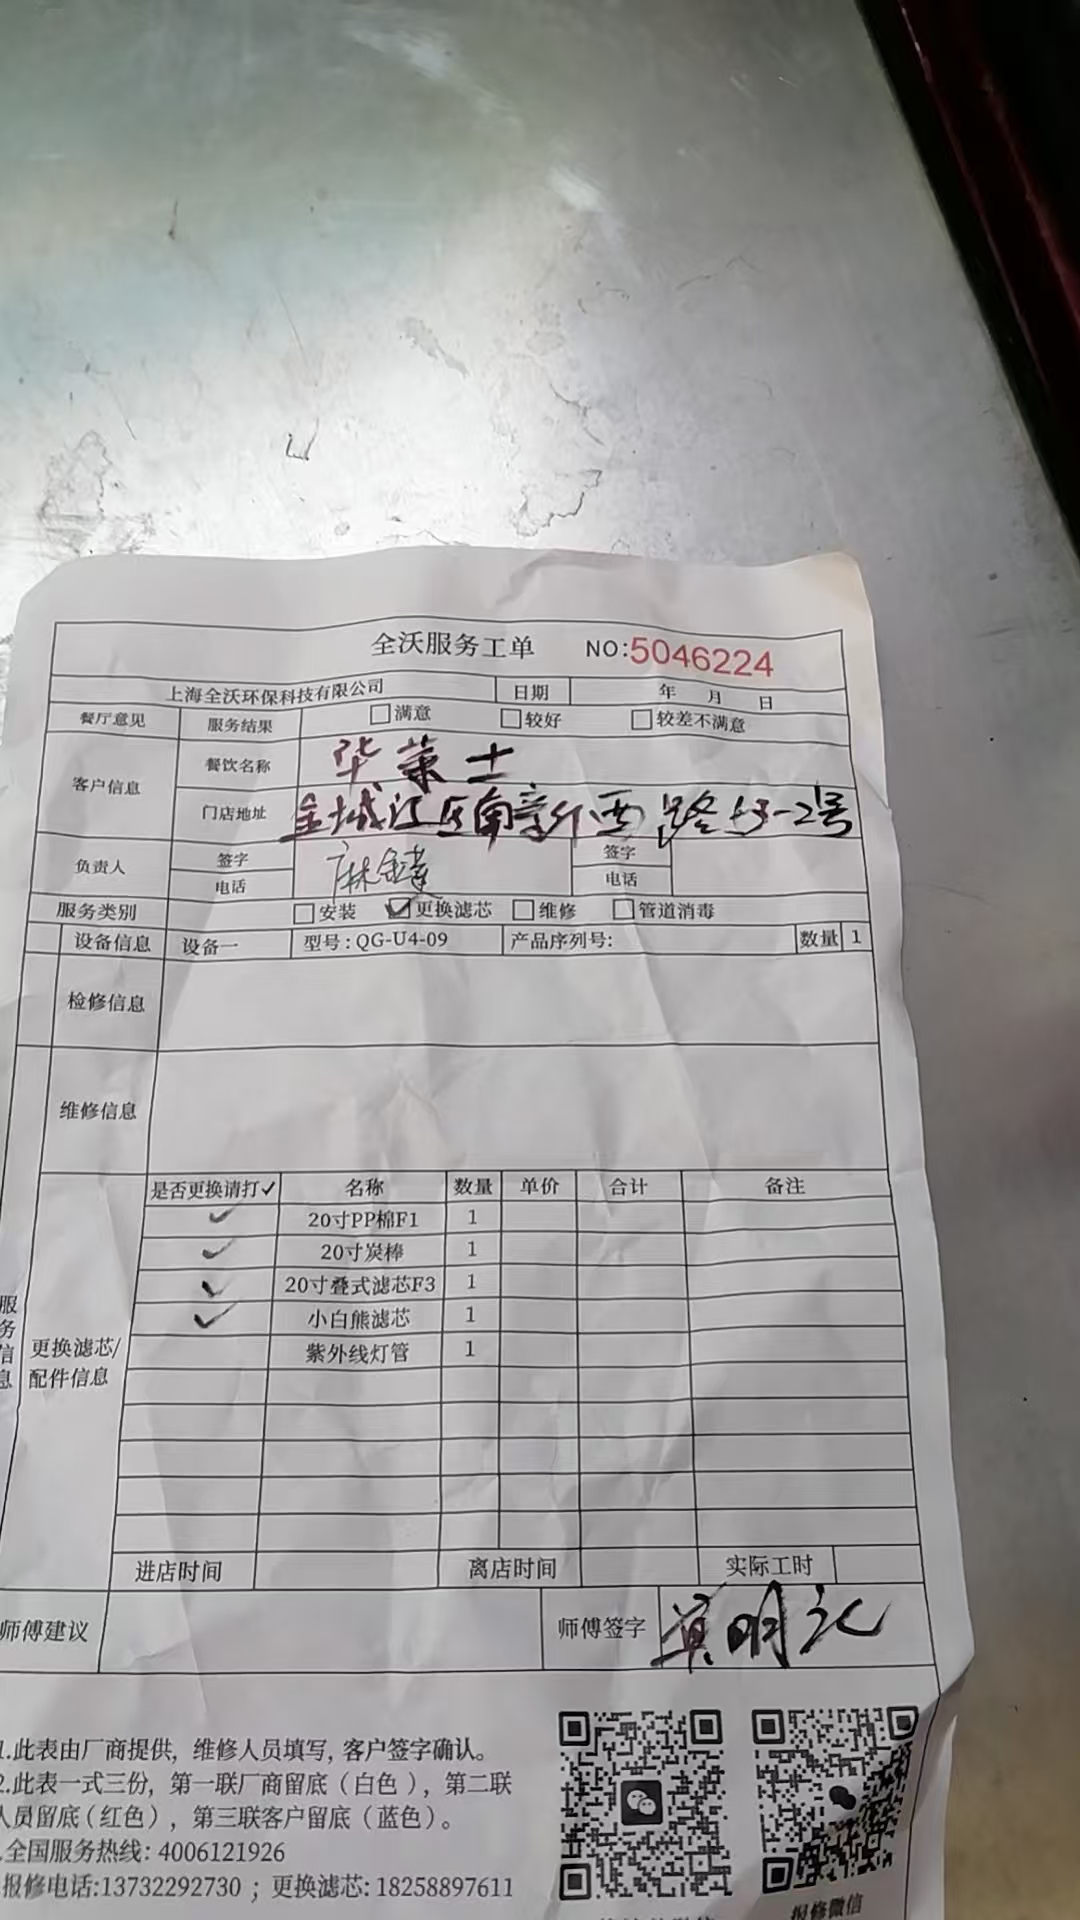 全沃服务工单 NO:5046224
上海全沃环保科技有限公司 日期 年 月 日
餐厅意见 服务结果 □满意 □较好 □较差不满意
客户信息 餐饮名称 华莱士
门店地址 金城江区南新西路53-2号
负责人 签字 签字
电话 电话
服务类别 □安装 ☑更换滤芯 □维修 □管道消毒
设备信息 设备一 型号:QG-U4-09 产品序列号: 数量 1
检修信息
维修信息
服务信息
更换滤芯/配件信息
是否更换请打✓ 名称 数量 单价 合计 备注
✓ 20寸PP棉F1 1
✓ 20寸炭棒 1
✓ 20寸叠式滤芯F3 1
✓ 小白熊滤芯 1
紫外线灯管 1
进店时间 离店时间 实际工时
师傅建议 师傅签字 莫明
1.此表由厂商提供, 维修人员填写, 客户签字确认。
2.此表一式三份, 第一联厂商留底(白色), 第二联
人员留底(红色), 第三联客户留底(蓝色)。
.全国服务热线: 4006121926
报修电话:13732292730 ; 更换滤芯: 18258897611
报修微信